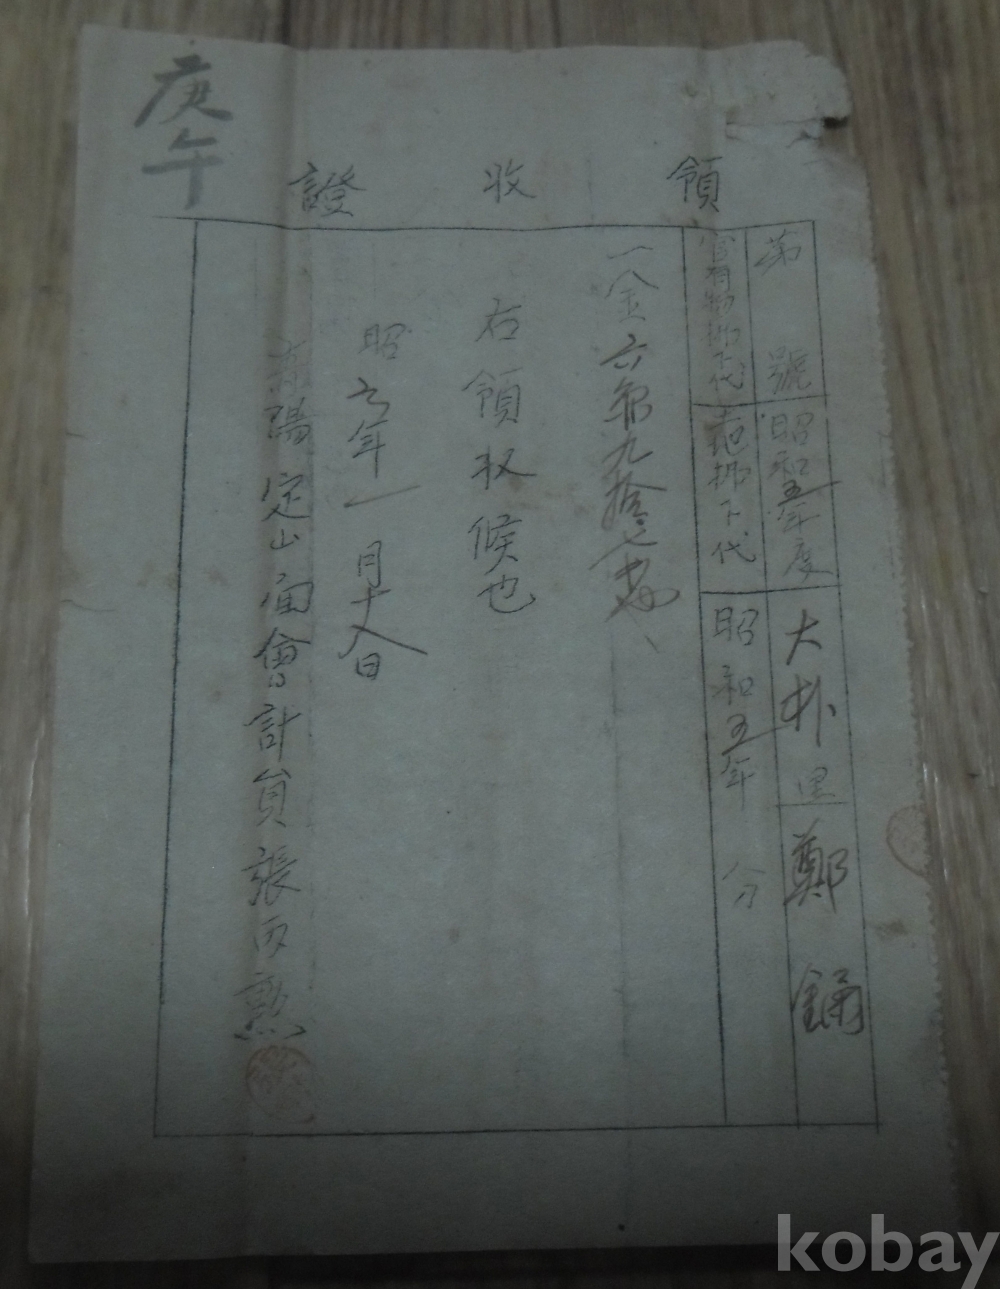 庚午
領收證
第 號 昭和五年度 大朴里 鄭鏞
官有物拂下代 土地拂下代 昭和五年 分
一金六円九拾七戋
右領収候也
昭 六年一月十八日
陽定山面會計員張丙勲
kobay